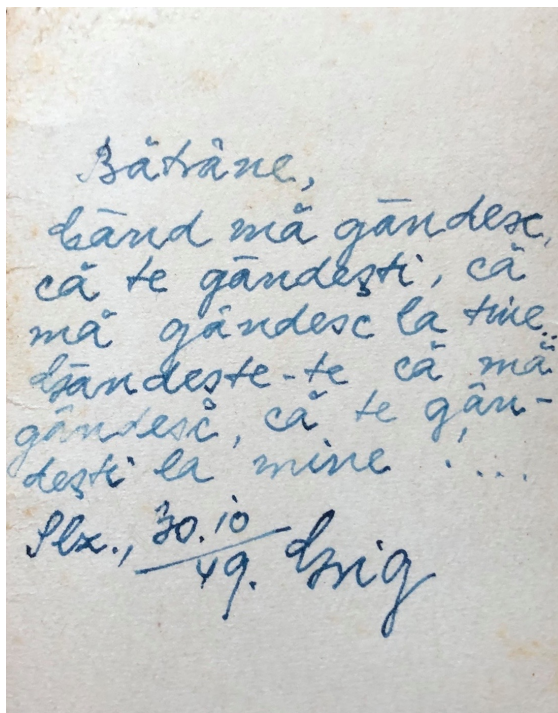 Bătrâne,
Când mă gândesc,
că te gândești, că
mă gândesc la tine..
Gândește-te că mă
gândesc, că te gân-
dești la mine ....
30.10
49.